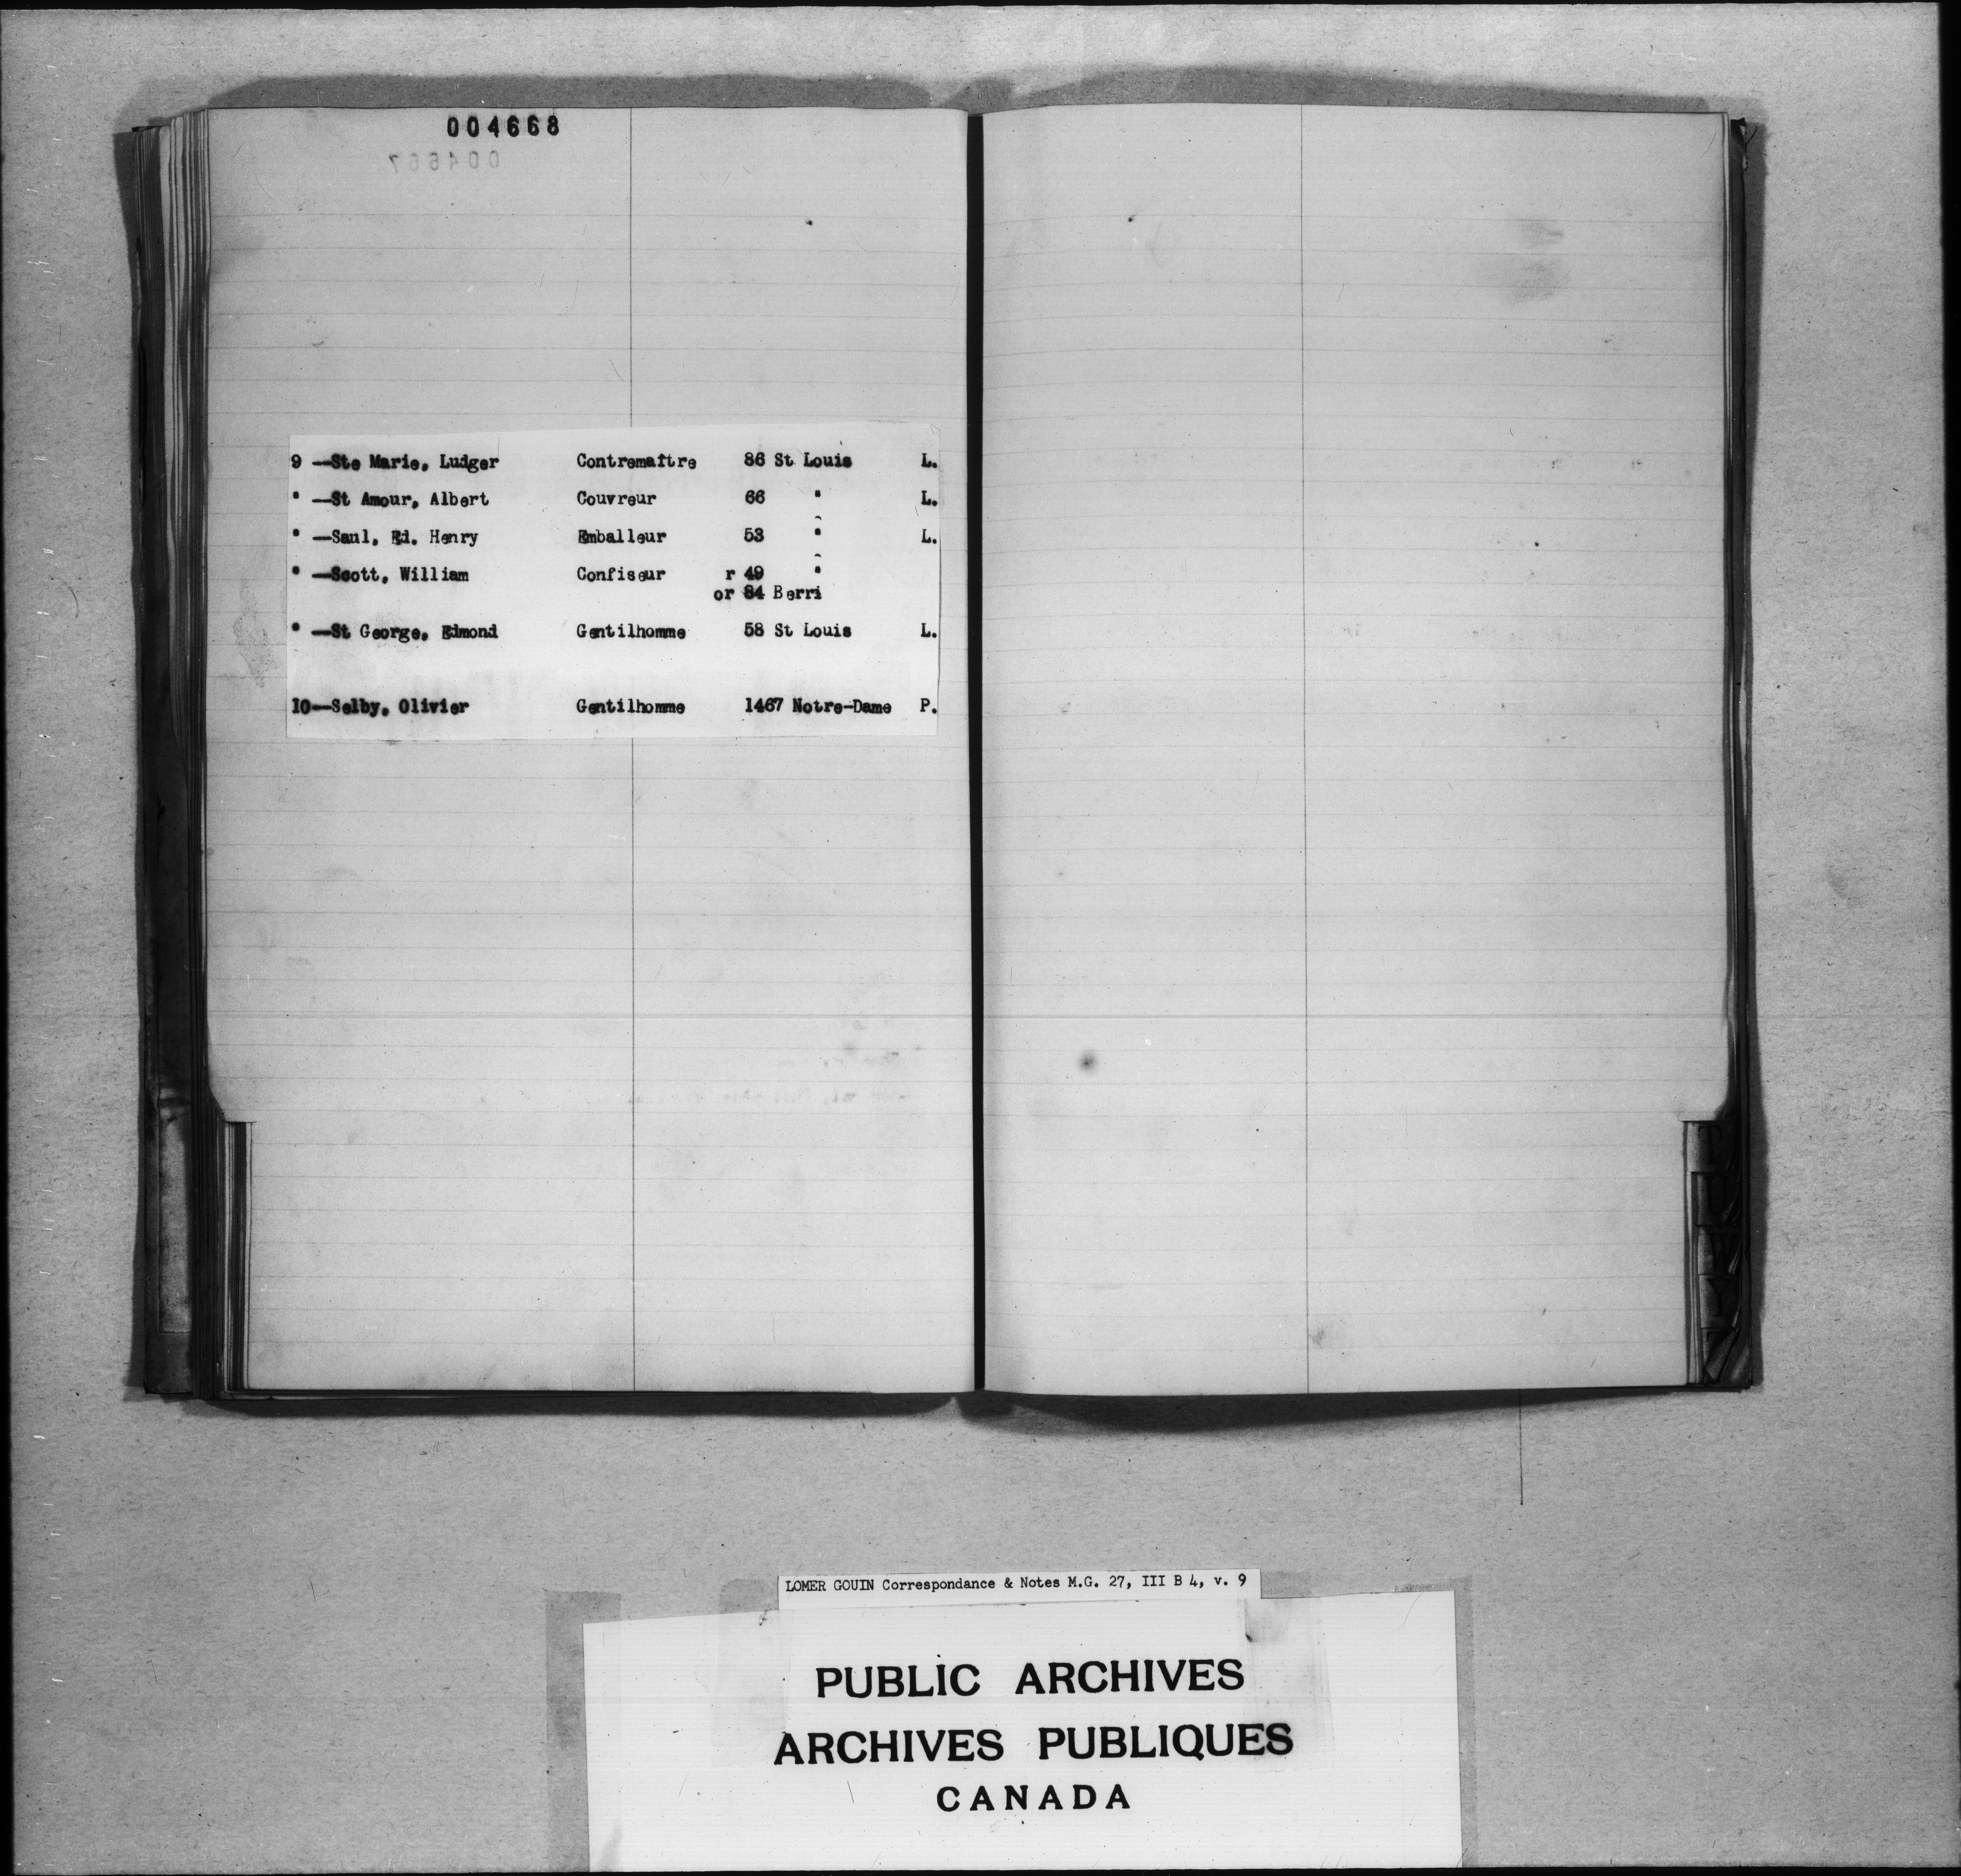 004668
004667
9 —Ste Marie, Ludger Contremaître 86 St Louis L.
" —St Amour, Albert Couvreur 66 " L.
" —Saul, Ed. Henry Emballeur 53 " L.
" —Scott, William Confiseur r 49 "
or 84 Berri
" —St George, Edmond Gentilhomme 58 St Louis L.
10—Selby, Olivier Gentilhomme 1467 Notre-Dame P.
W
Y
LOMER GOUIN Correspondance & Notes M.G. 27, III B 4, v. 9
PUBLIC ARCHIVES
ARCHIVES PUBLIQUES
CANADA